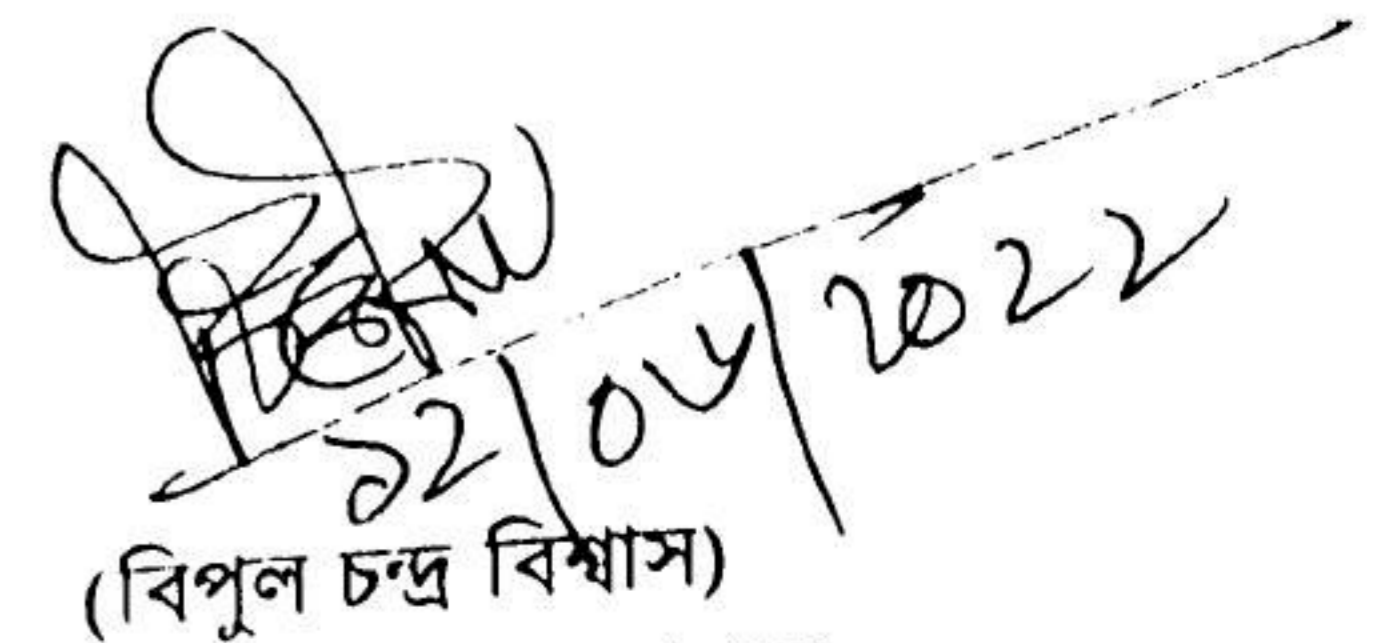 ১২/০৬/২০২২
(বিপুল চন্দ্র বিশ্বাস)